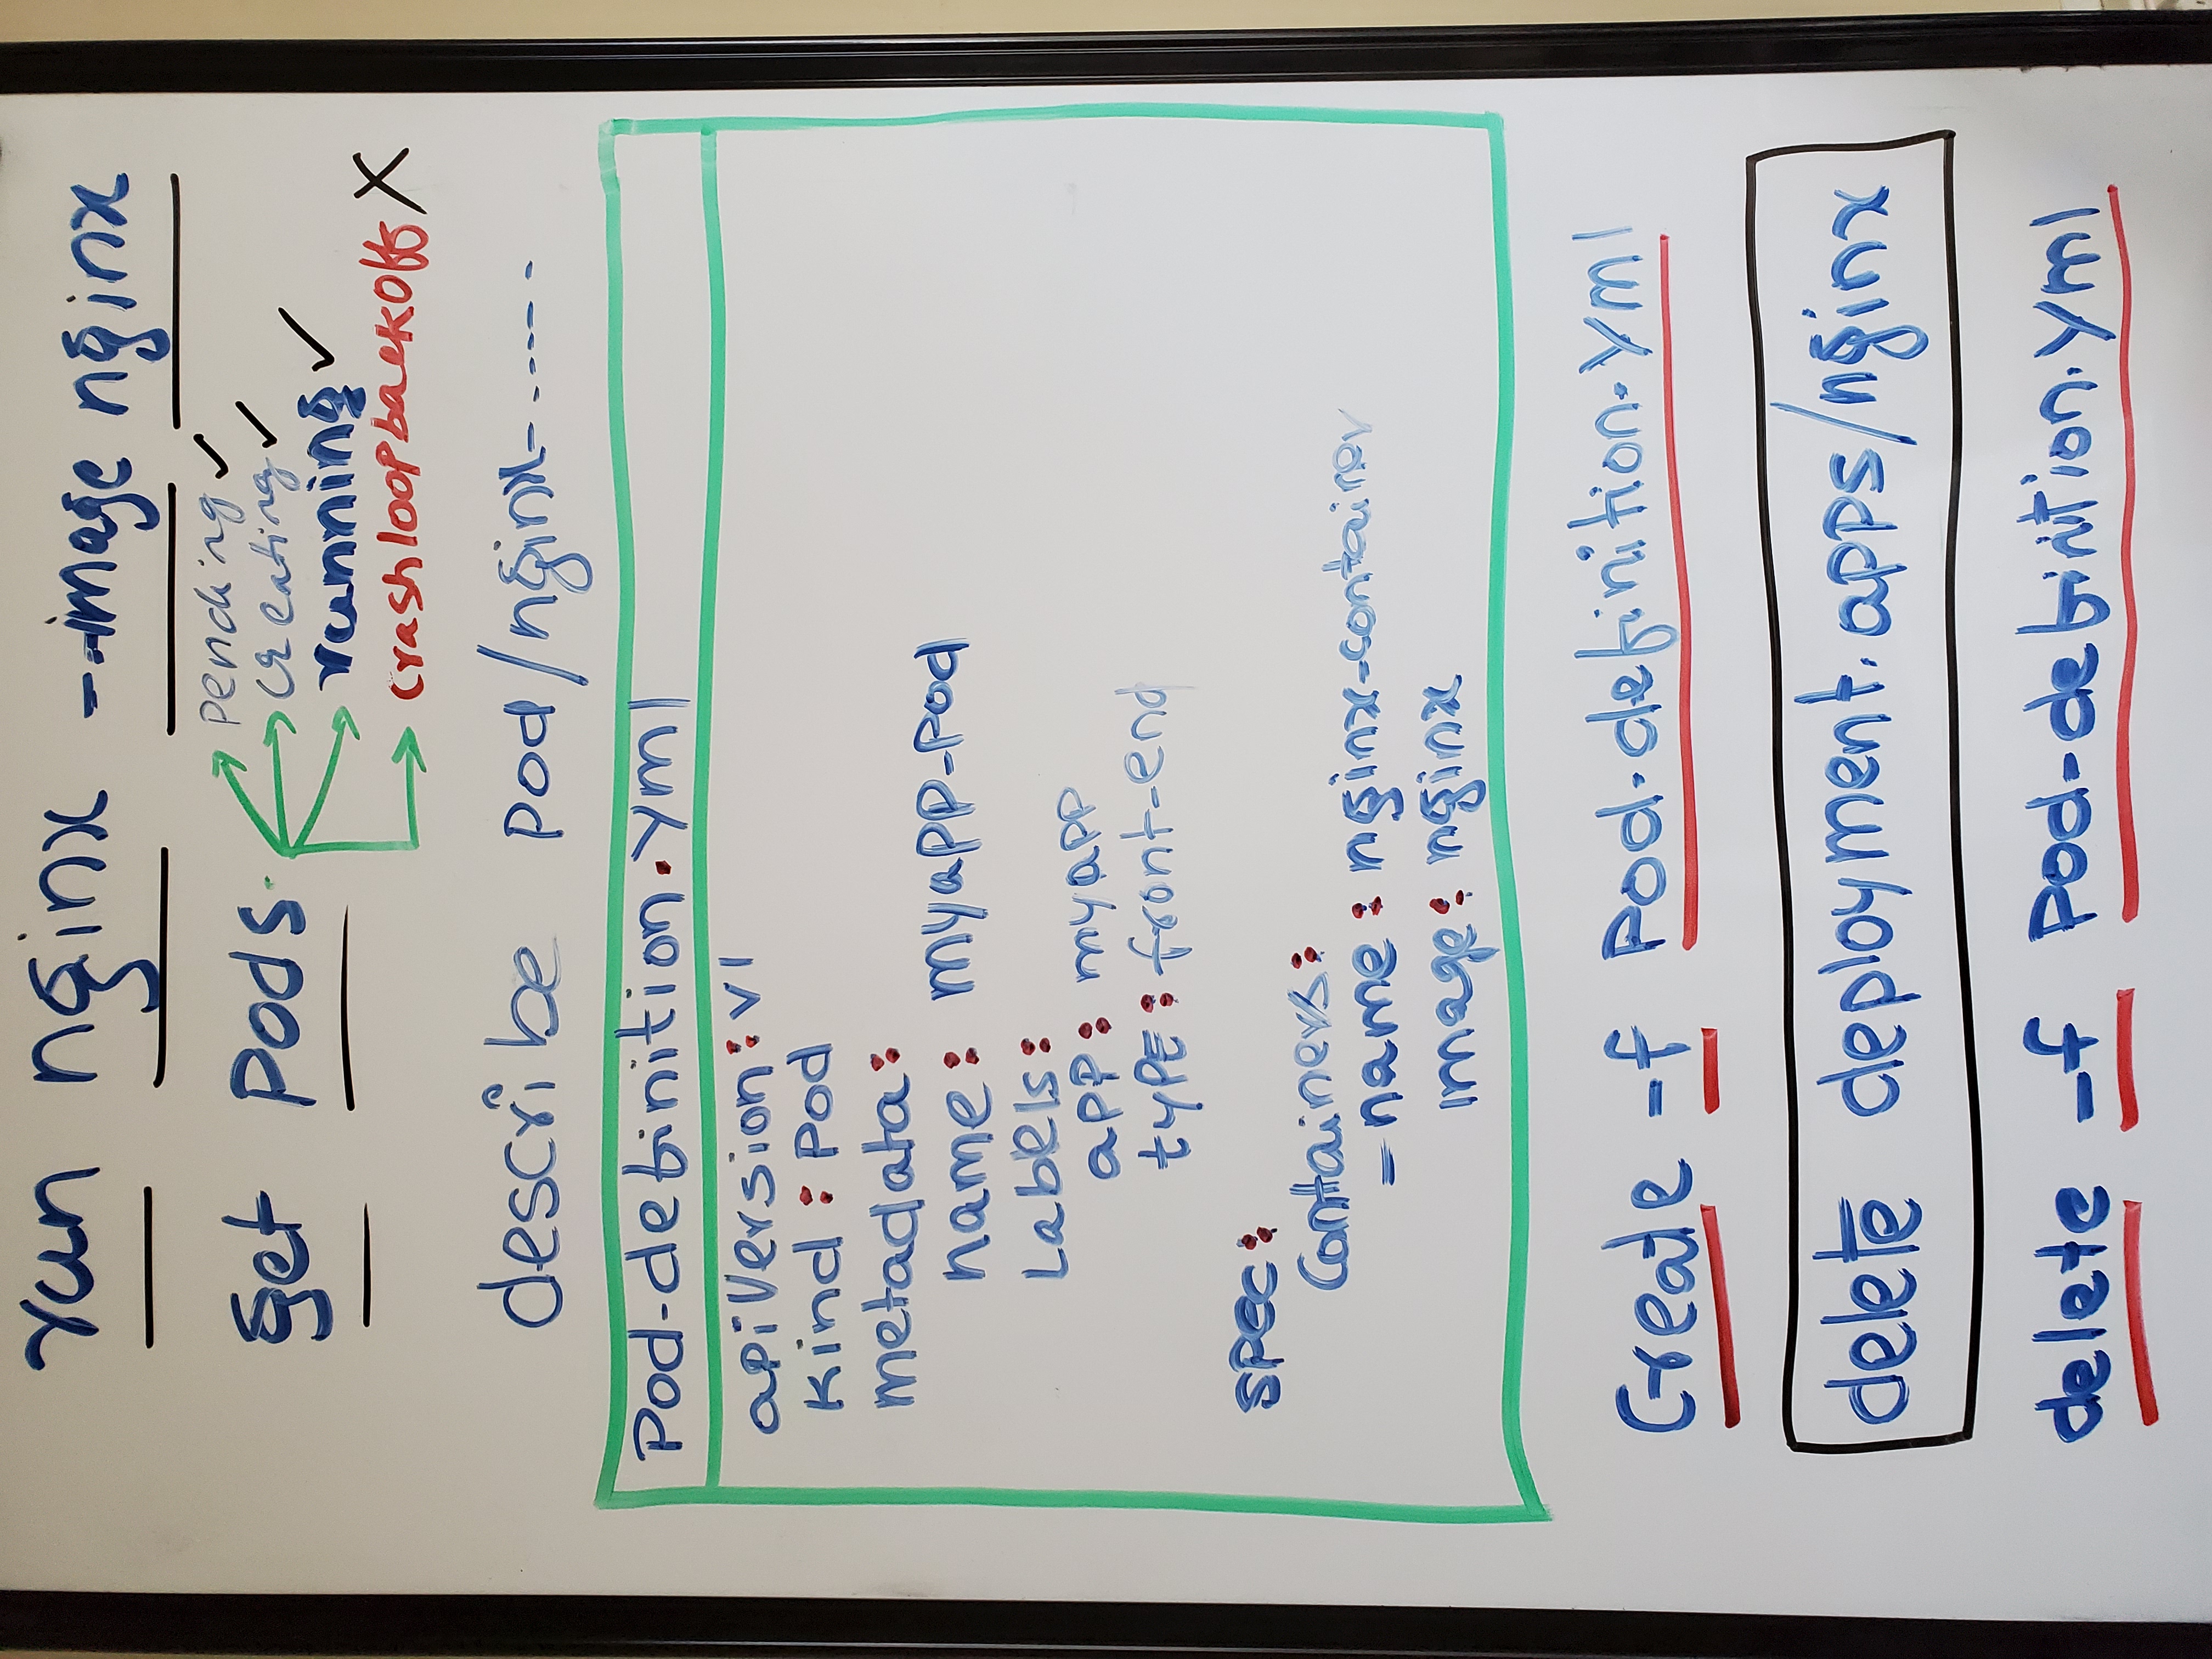 run nginx --image nginx
get pods
pending ✓
creating ✓
running ✓
crashloopbackoff X
describe pod/nginx-.....
Pod-definition.yml
apiVersion: v1
kind: Pod
metadata:
name: myapp-pod
Labels:
app: myapp
type: front-end
spec:
Containers:
- name: nginx-container
image: nginx
Create -f Pod-definition.yml
delete deployment.apps/nginx
delete -f Pod-definition.yml